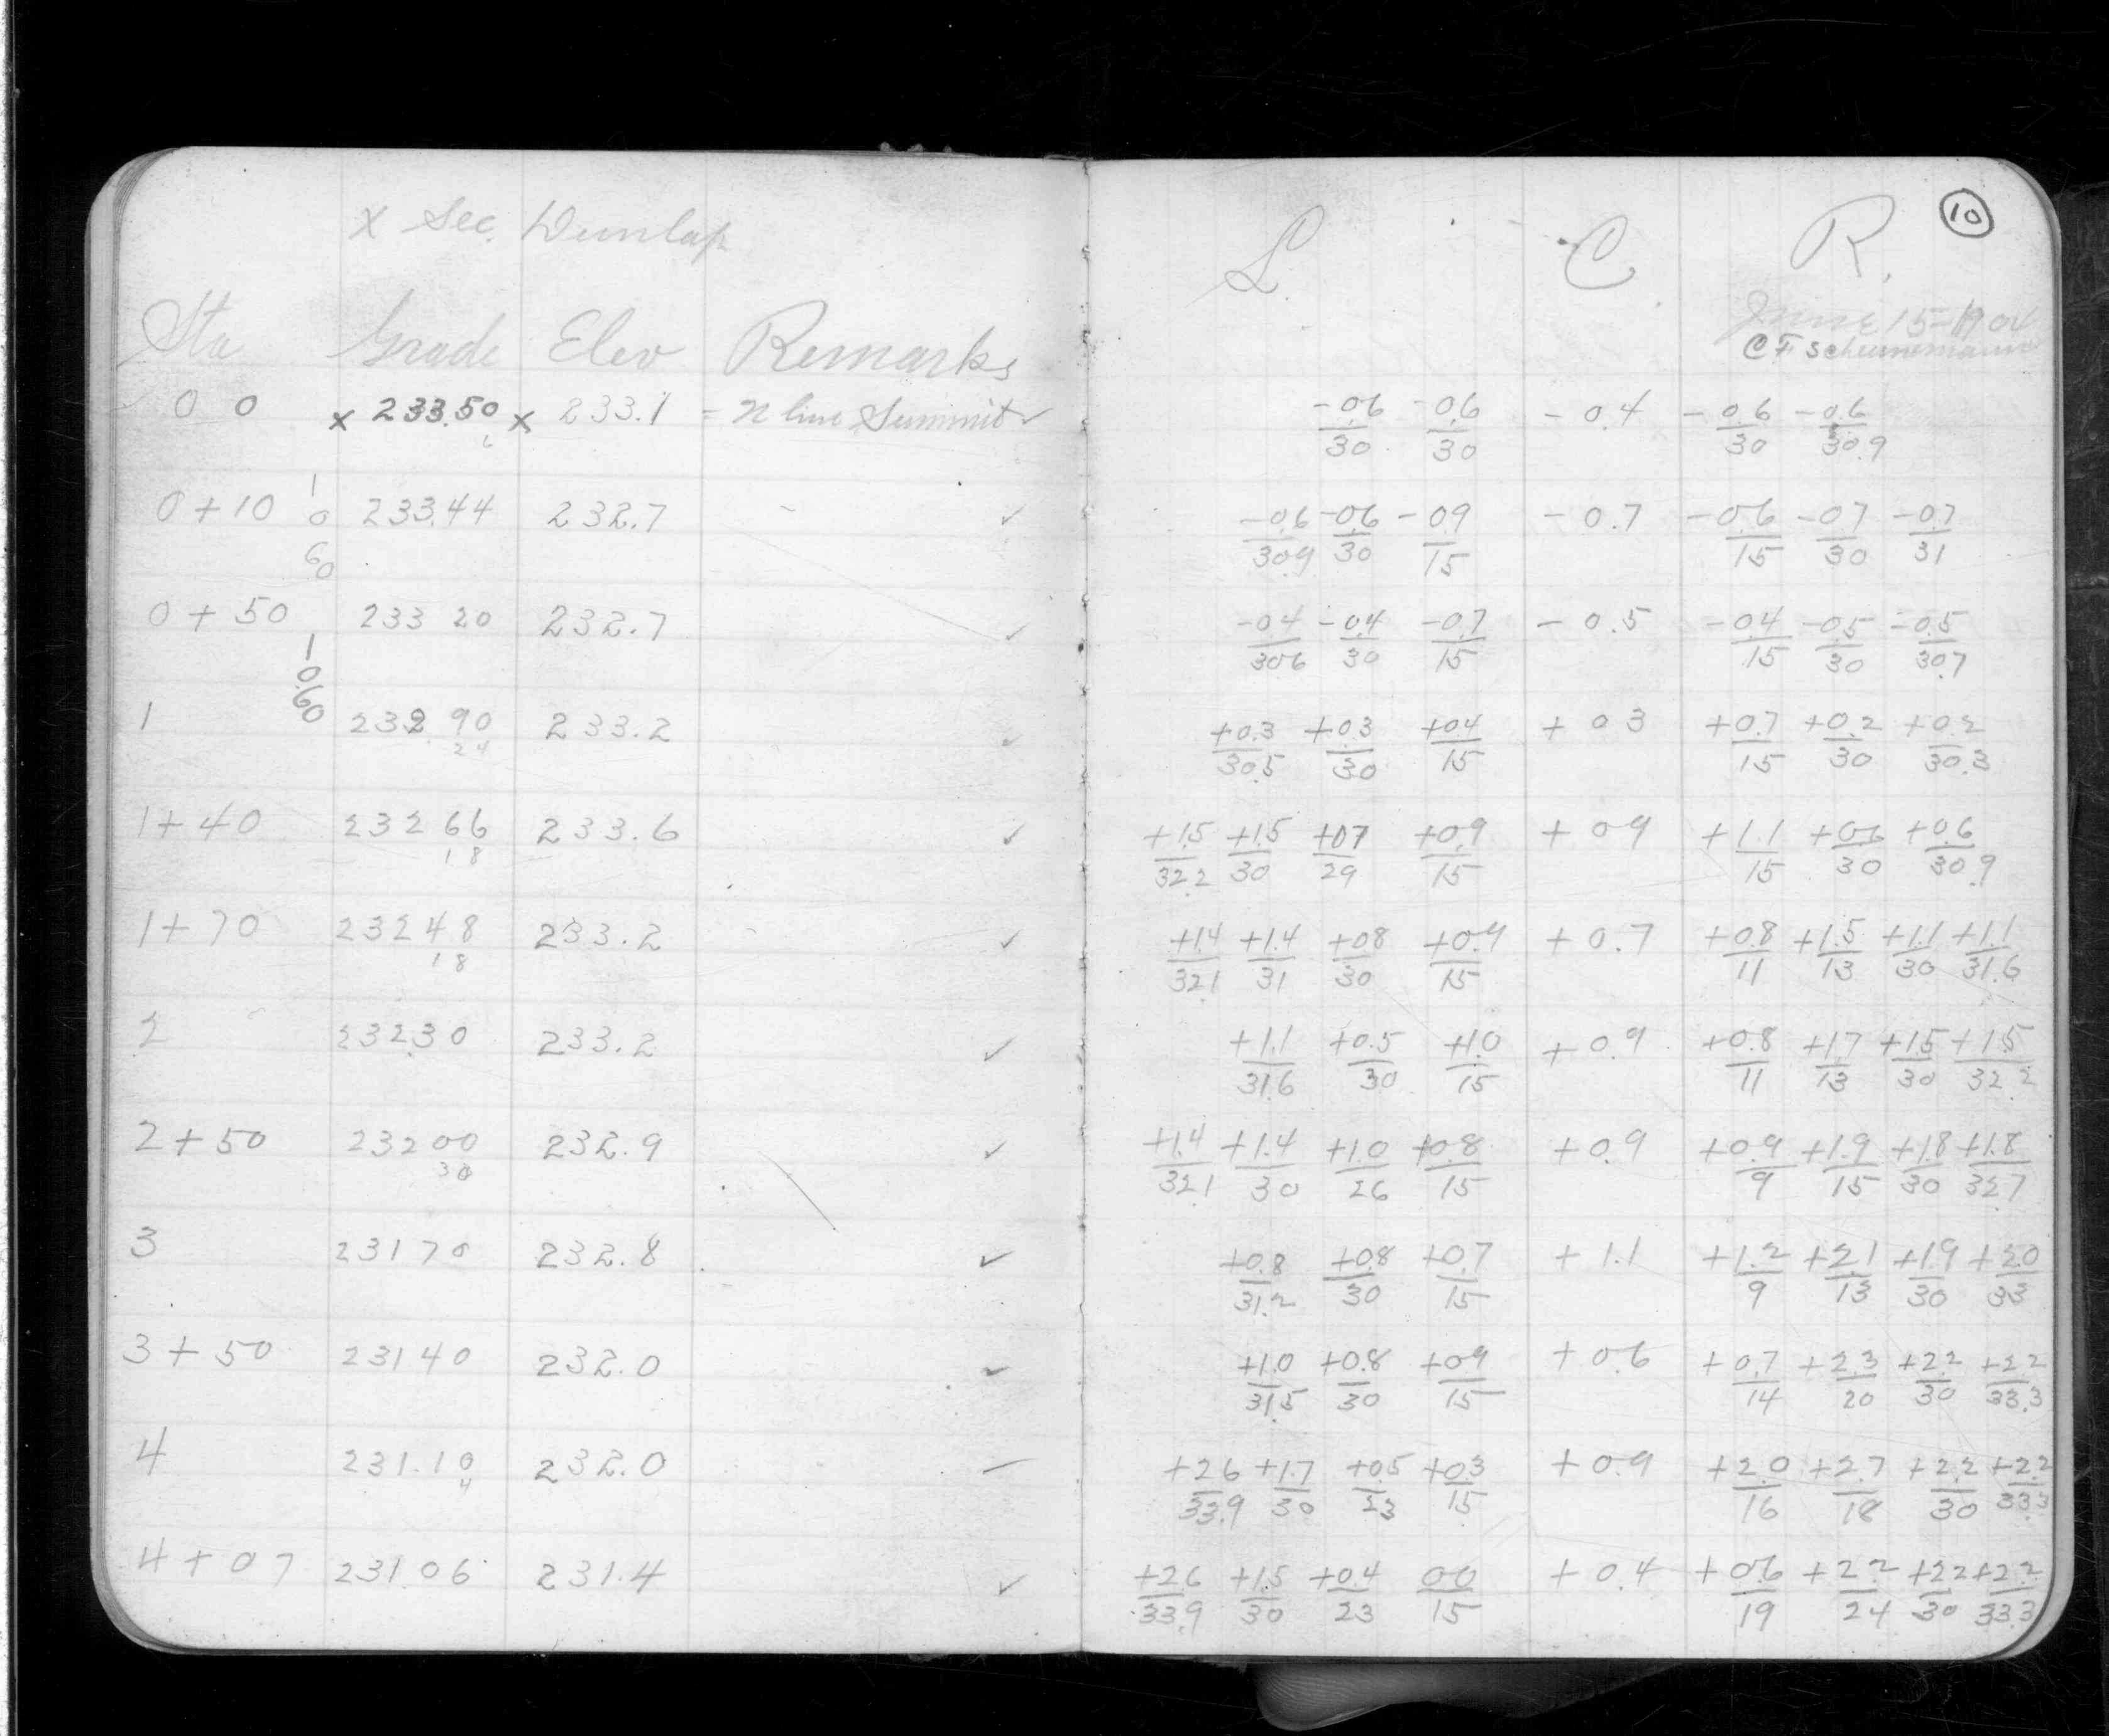 x Sec. Dunlap
Sta Grade Elev Remarks
0 0 x 233.50 x 233.1 = n line Summit ✓
6
0+10 233.44 232.7 ✓
1 0 60
0+50 233 20 232.7 ✓
1 0.60
1 232 90 233.2 ✓
24
1+40 232 66 233.6 ✓
18
1+70 232 48 233.2 ✓
18
2 232.30 233.2 ✓
2+50 232 00 232.9 ✓
30
3 231 70 232.8 ✓
3+50 231 40 232.0 ✓
4 231.10 232.0 –
4
4+07 231.06 231.4 ✓
10
L C R.
June 15-1904
C F Scheunemann
-0.6/30 -0.6/30 -0.4 -0.6/30 -0.6/30.9
-0.6/30.9 -0.6/30 -0.9/15 -0.7 -0.6/15 -0.7/30 -0.7/31
-0.4/30.6 -0.4/30 -0.7/15 -0.5 -0.4/15 -0.5/30 -0.5/30.7
+0.3/30.5 +0.3/30 +0.4/15 +0 3 +0.7/15 +0.2/30 +0.2/30.3
+1.5/32.2 +1.5/30 +07/29 +0.9/15 +0 9 +1.1/15 +0.6/30 +0.6/30.9
+1.4/32.1 +1.4/31 +0.8/30 +0.9/15 +0.7 +0.8/11 +1.5/13 +1.1/30 +1.1/31.6
+1.1/31.6 +0.5/30 +1.0/15 +0.9 +0.8/11 +1.7/13 +1.5/30 +1.5/32.2
+1.4/32.1 +1.4/30 +1.0/26 +0.8/15 +0.9 +0.9/9 +1.9/15 +1.8/30 +1.8/32.7
+0.8/31.2 +0.8/30 +0.7/15 +1.1 +1.2/9 +2.1/13 +1.9/30 +2.0/33
+1.0/31.5 +0.8/30 +0.9/15 +0.6 +0.7/14 +2.3/20 +2.2/30 +2.2/33.3
+2.6/33.9 +1.7/30 +0.5/23 +0.3/15 +0.9 +2.0/16 +2.7/18 +2.2/30 +2.2/33.3
+2.6/33.9 +1.5/30 +0.4/23 0.0/15 +0.4 +0.6/19 +2.2/24 +2.2/30 +2.2/33.3